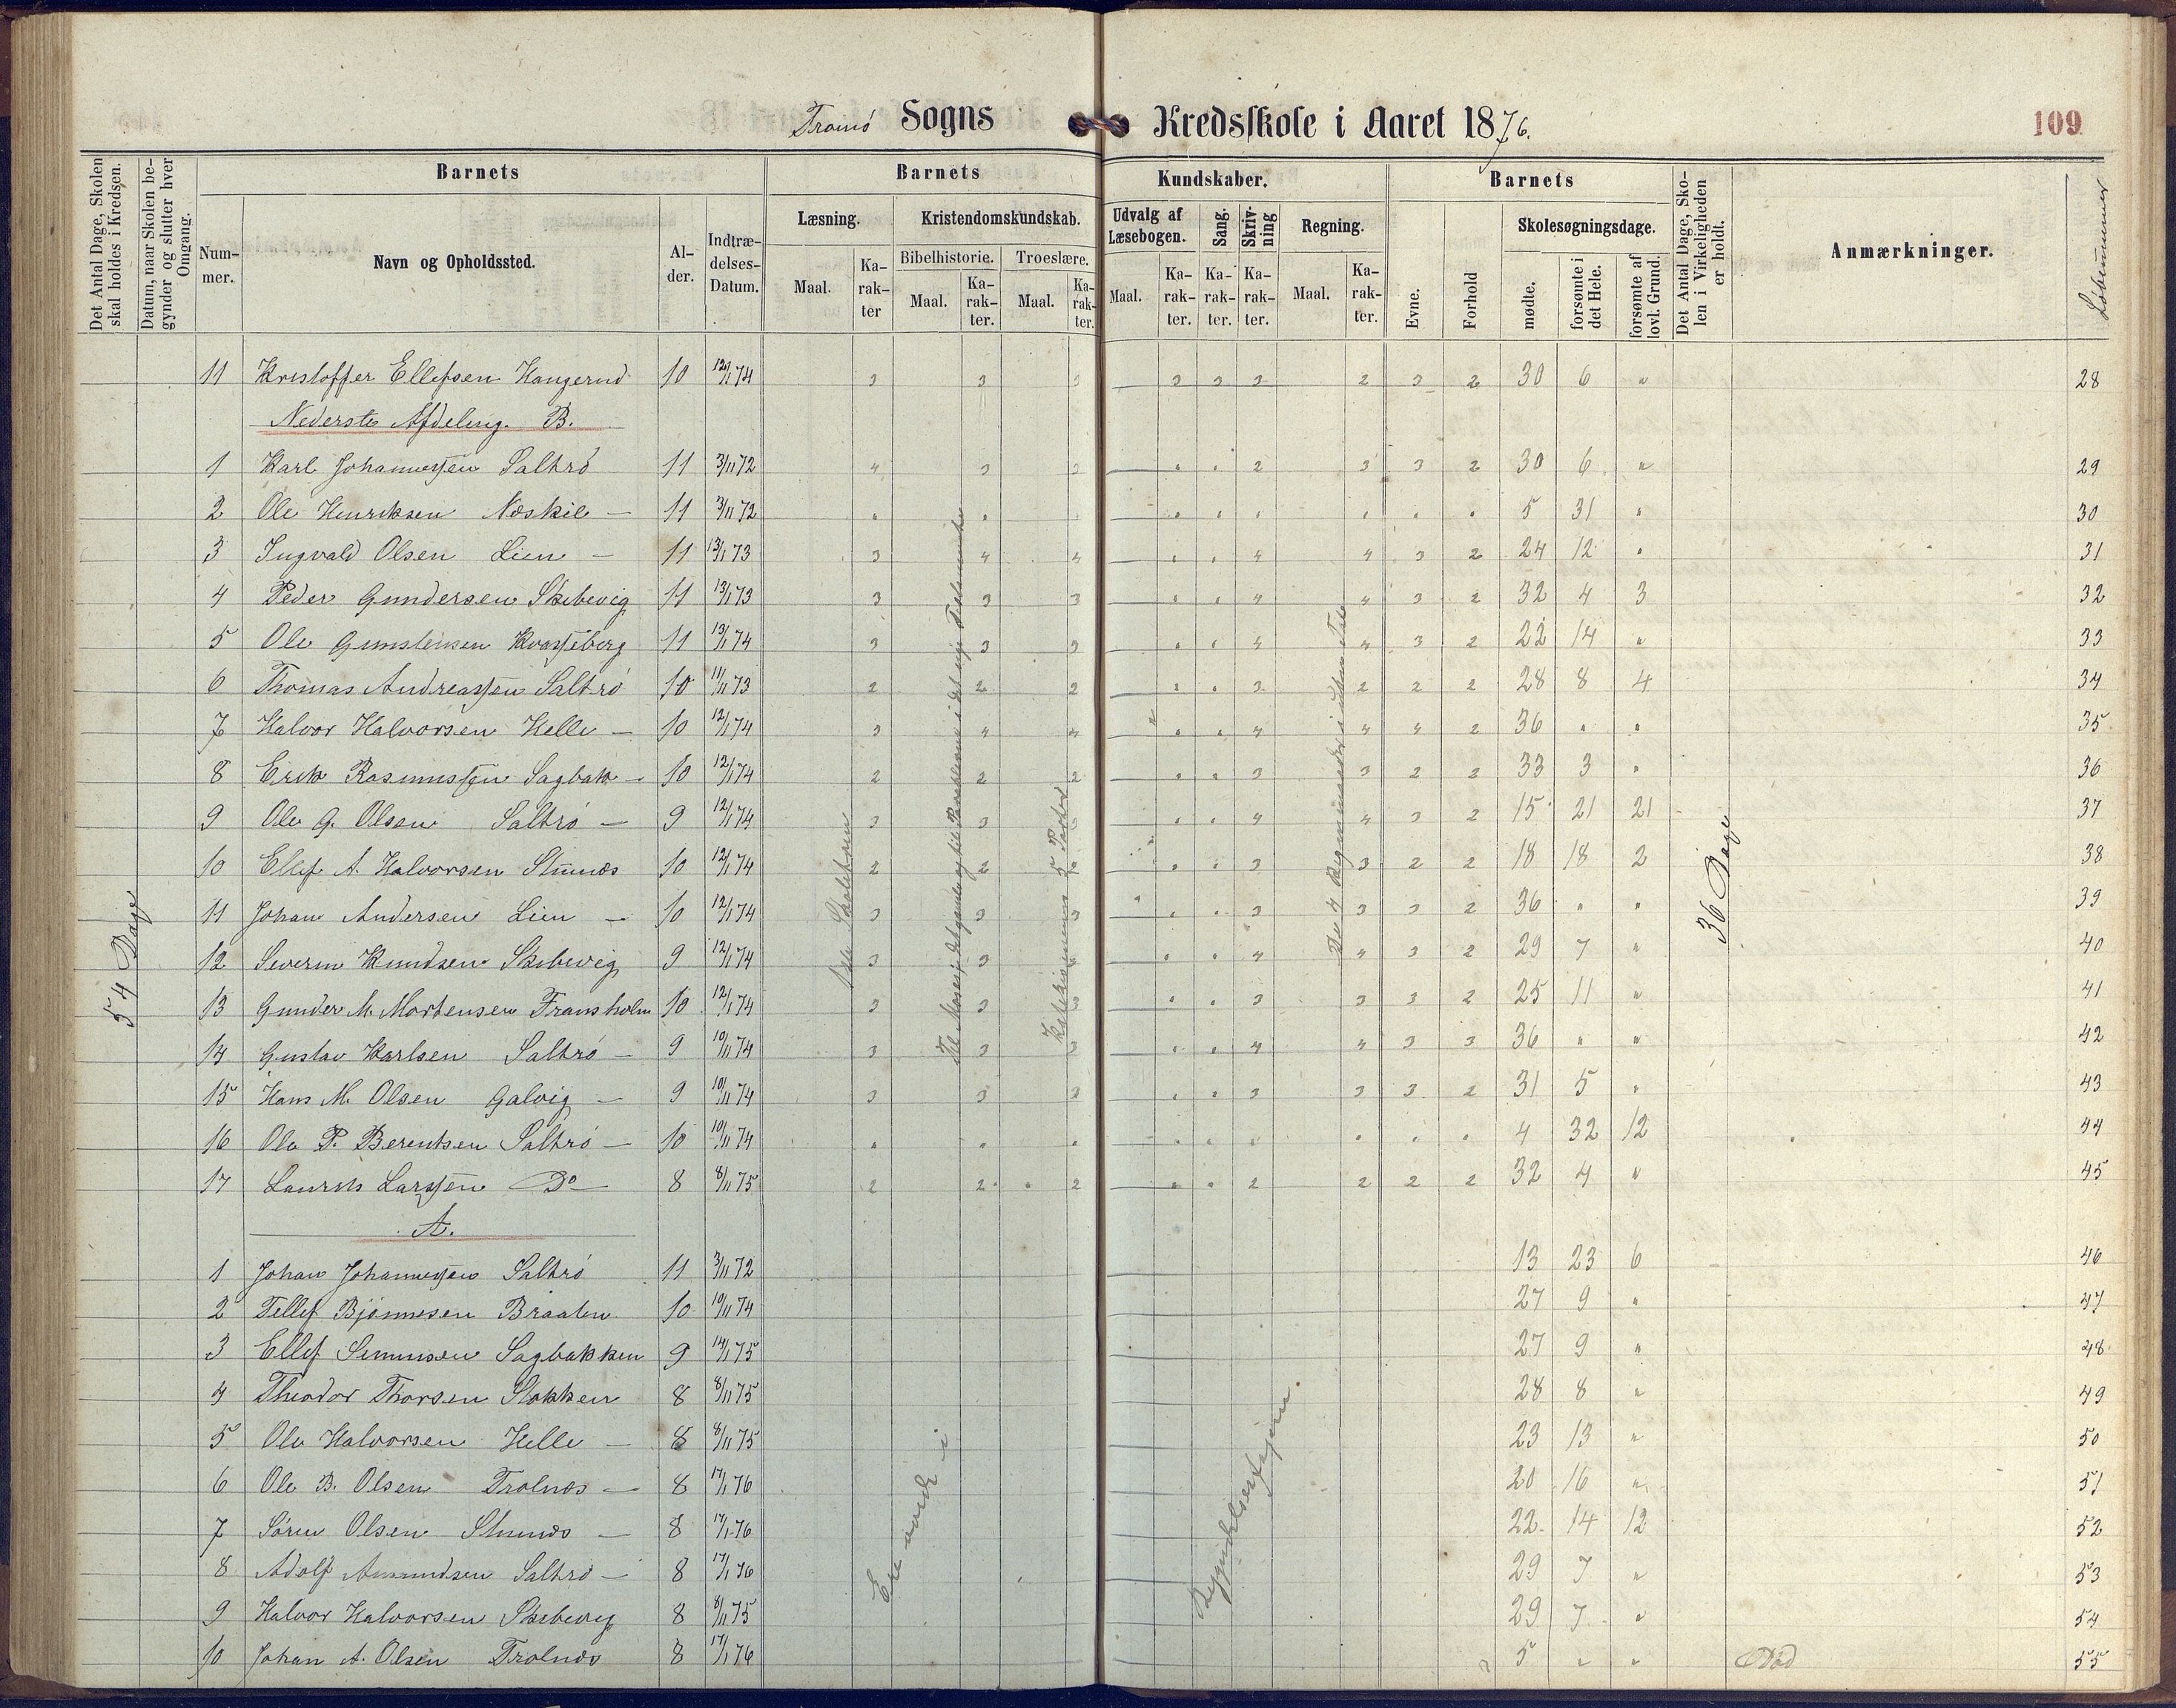 Tromö Sogns Kredsskole i Aaret 1876. 109
Det Antal Dage, Skolen skal holdes i Kredsen.
Datum, naar Skolen begynder og slutter hver Omgang.
Barnets
Nummer.
Navn og Opholdssted.
Alder.
Indtrædelses-Datum.
Barnets Kundskaber.
Læsning. Maal. Karakter
Kristendomskundskab.
Bibelhistorie. Maal. Karakter.
Troeslære. Maal. Karakter.
Udvalg af Læsebogen. Maal. Karakter.
Sang. Karakter.
Skrivning Karakter.
Regning. Maal. Karakter.
Barnets
Evne.
Forhold
Skolesøgningsdage.
mødte.
forsømte i det Hele.
forsømte af lovl. Grund.
Det Antal Dage, Skolen i Virkeligheden er holdt.
Anmærkninger.
Löbenummer
11 Kristoffer Ellefsen Haugerud 10 12/1 74 3 3 3 3 3 3 2 3 2 30 6 " 28
Nederste Afdeling. B.
1 Karl Johannessen Saltrö 11 3/11 72 4 3 3 " " 2 3 3 2 30 6 " 29
2 Ole Henriksen Næskil — 11 3/11 72 " " " " " " " " " 5 31 " 30
3 Ingvald Olsen Lien — 11 13/1 73 3 4 4 " " 4 4 3 2 24 12 " 31
4 Peder Gundersen Skibevig 11 13/1 73 3 3 3 " " 4 4 3 2 32 4 3 32
5 Ole Gunstensen Kvasseberg 11 13/1 74 3 3 3 " " 4 4 3 2 22 14 " 33
6 Thomas Andreassen Saltrö 10 11/11 73 2 2 2 " " 3 2 2 2 28 8 4 34
7 Halvor Halvorsen Helle — 10 12/1 74 3 4 4 " " 4 4 4 2 36 " " 35
8 Erik Rasmussen Sagbak — 10 12/1 74 2 2 2 " " 3 3 2 2 33 3 " 36
9 Ole G. Olsen Saltrö — 9 12/1 74 3 3 3 " " 4 4 3 2 15 21 21 37
10 Ellef A. Halvorsen Stuenæs 10 12/1 74 2 2 " " 3 3 2 2 18 18 2 38
11 Johan Andersen Lien — 10 12/1 74 3 3 3 " " 3 3 3 2 36 " " 39
12 Severin Knudsen Skibevig 9 12/1 74 3 3 " " 4 4 3 2 29 7 " 40
13 Gunder M. Mortensen Fransholm 10 12/1 74 3 3 3 " " 3 3 3 2 25 11 " 41
14 Gustav Karlsen Saltrö — 9 10/11 74 3 3 3 " " 4 4 3 3 36 " " 42
15 Hans M. Olsen Galvig — 9 10/11 74 3 3 3 " " 3 3 3 2 31 5 " 43
16 Ole P. Berentsen Saltrö — 10 10/11 74 " " " " " " " " " 4 32 12 44
17 Laurits Larssen Do — 8 8/11 75 2 2 2 " " 2 2 2 2 32 4 " 45
A.
1 Johan Johannessen Saltrö 11 3/11 72 13 23 6 46
2 Tellef Bjönnesen Braaten 10 10/11 74 27 9 " 47
3 Ellef Simonsen Sagbakken 9 14/1 75 27 9 " 48
4 Theodor Thorsen Stokken 8 8/11 75 28 8 " 49
5 Ole Halvorsen Helle — 8 8/11 75 23 13 " 50
6 Ole B. Olsen Trolnæs — 8 17/1 76 20 16 " 51
7 Sören Olsen Stuenæs — 8 17/1 76 22 14 12 52
8 Adolf Amundsen Saltrö — 8 17/1 76 29 7 " 53
9 Halvor Halvorsen Skibevig 8 8/11 75 29 7 " 54
10 Johan A. Olsen Trolnæs 8 17/1 76 5 " " Död 55
54 Dage
Katekismusens 5 Parter
De 4 Regningsarter i hele Tal
36 Dage
Ere endnu i Begyndelsen